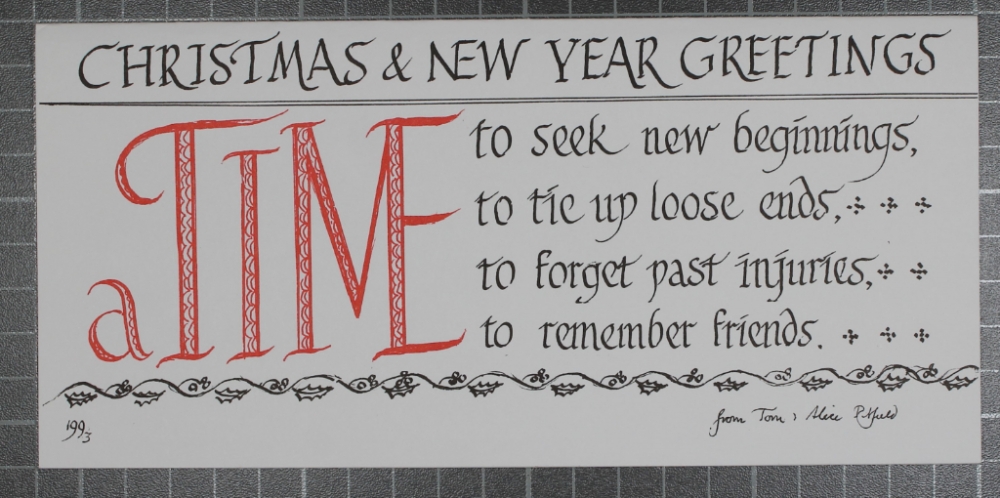 CHRISTMAS & NEW YEAR GREETINGS
a TIME
to seek new beginnings,
to tie up loose ends,
to forget past injuries,
to remember friends.
1993
from Tom & Alice Pitfield